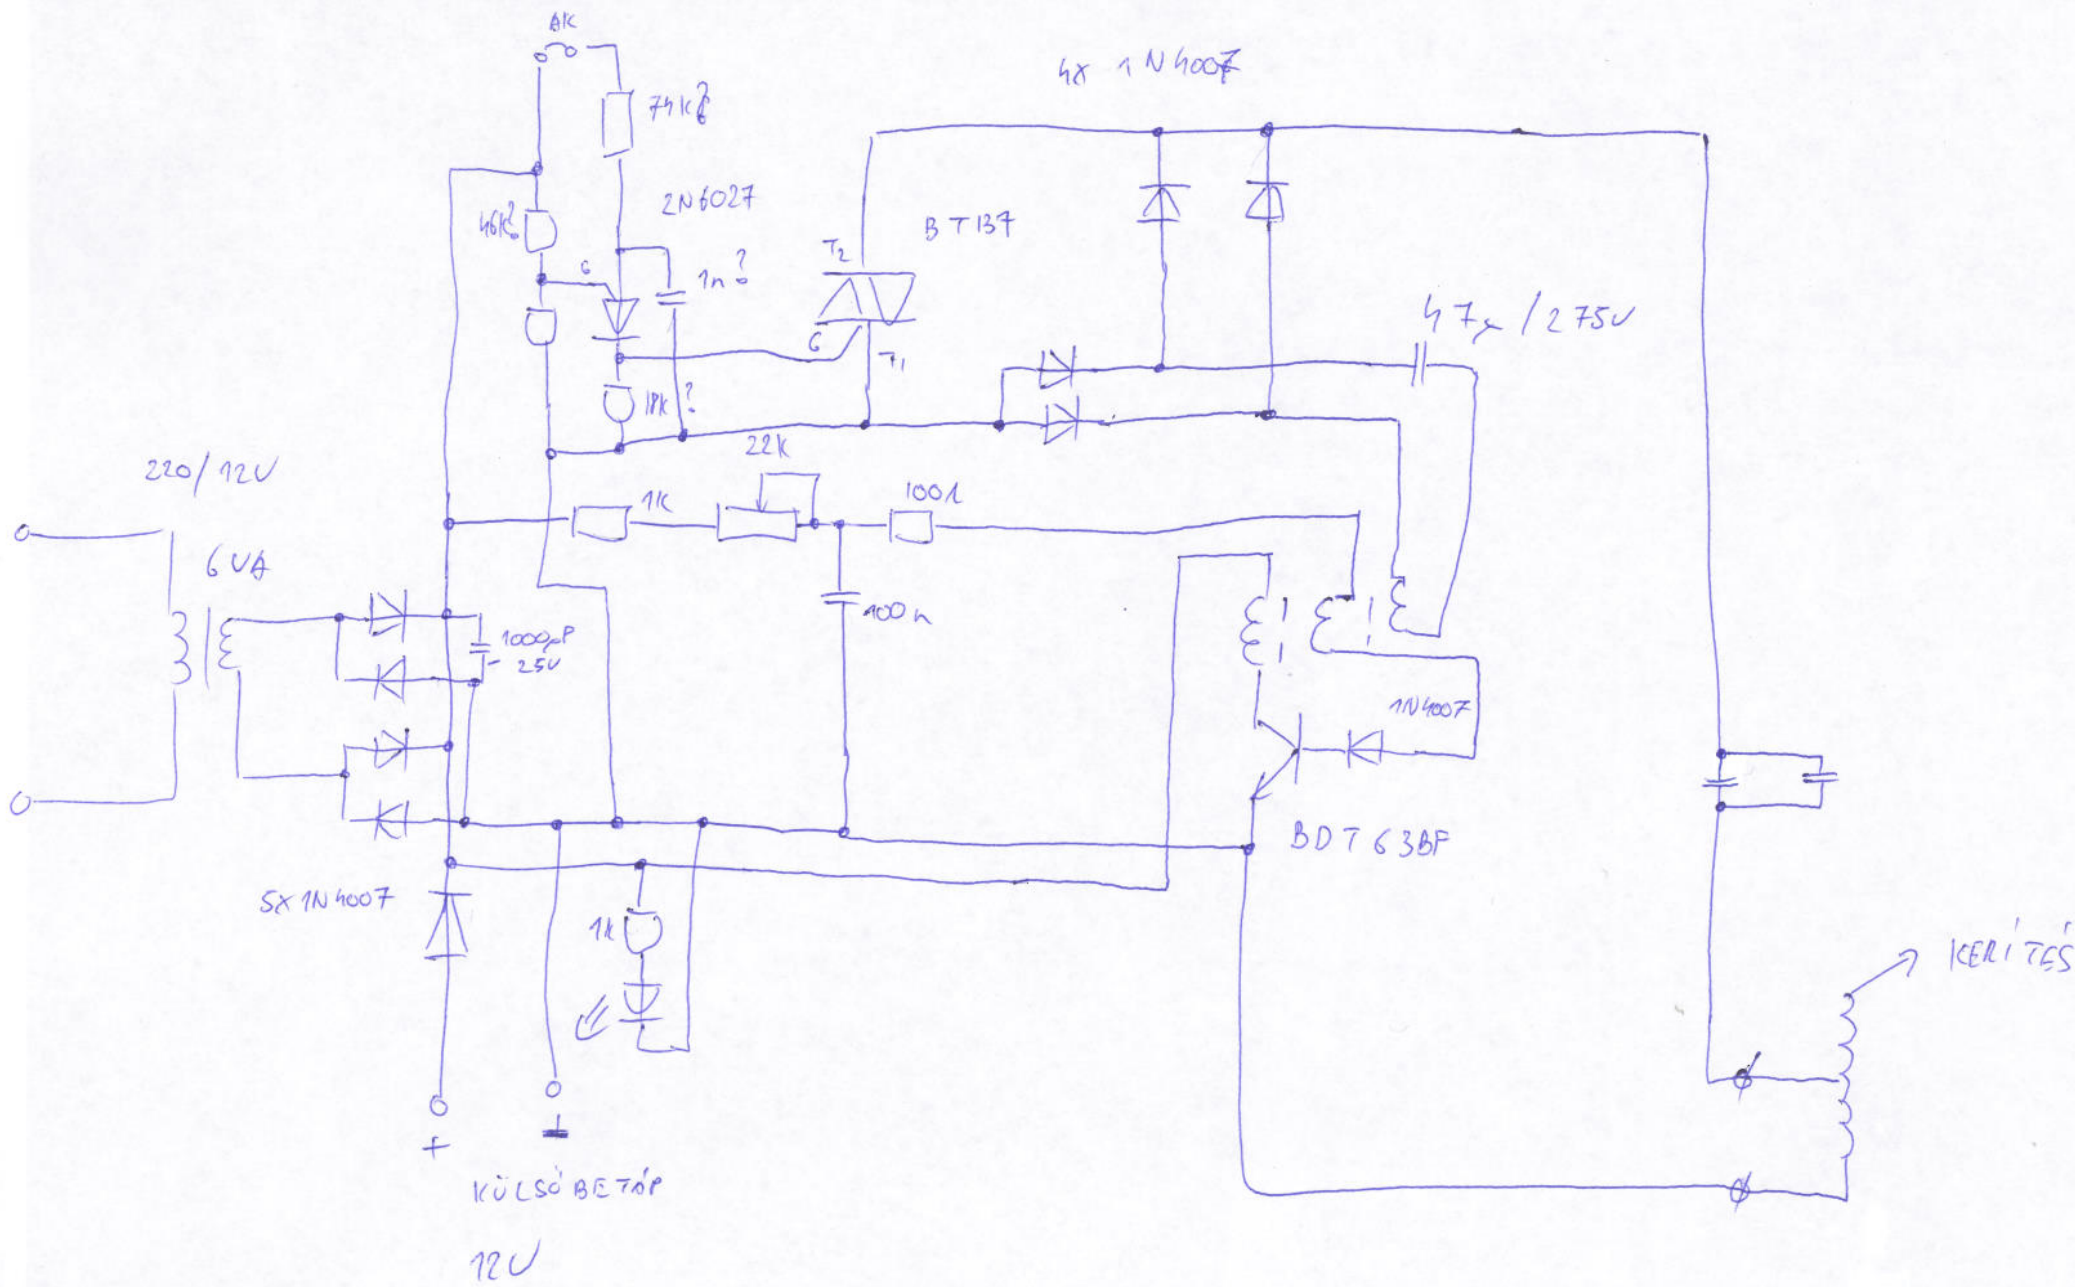 AK
4X 1N4007
74K?
2N6027
46K?
G
1n?
T2
BT137
G
T1
47µ/275V
18K?
22K
220/12V
1K
100Ω
6VA
100n
1000µF
25V
1N4007
BDT63BF
5X1N4007
1K
KERÍTÉS
+
KÜLSŐ BETÁP
12V